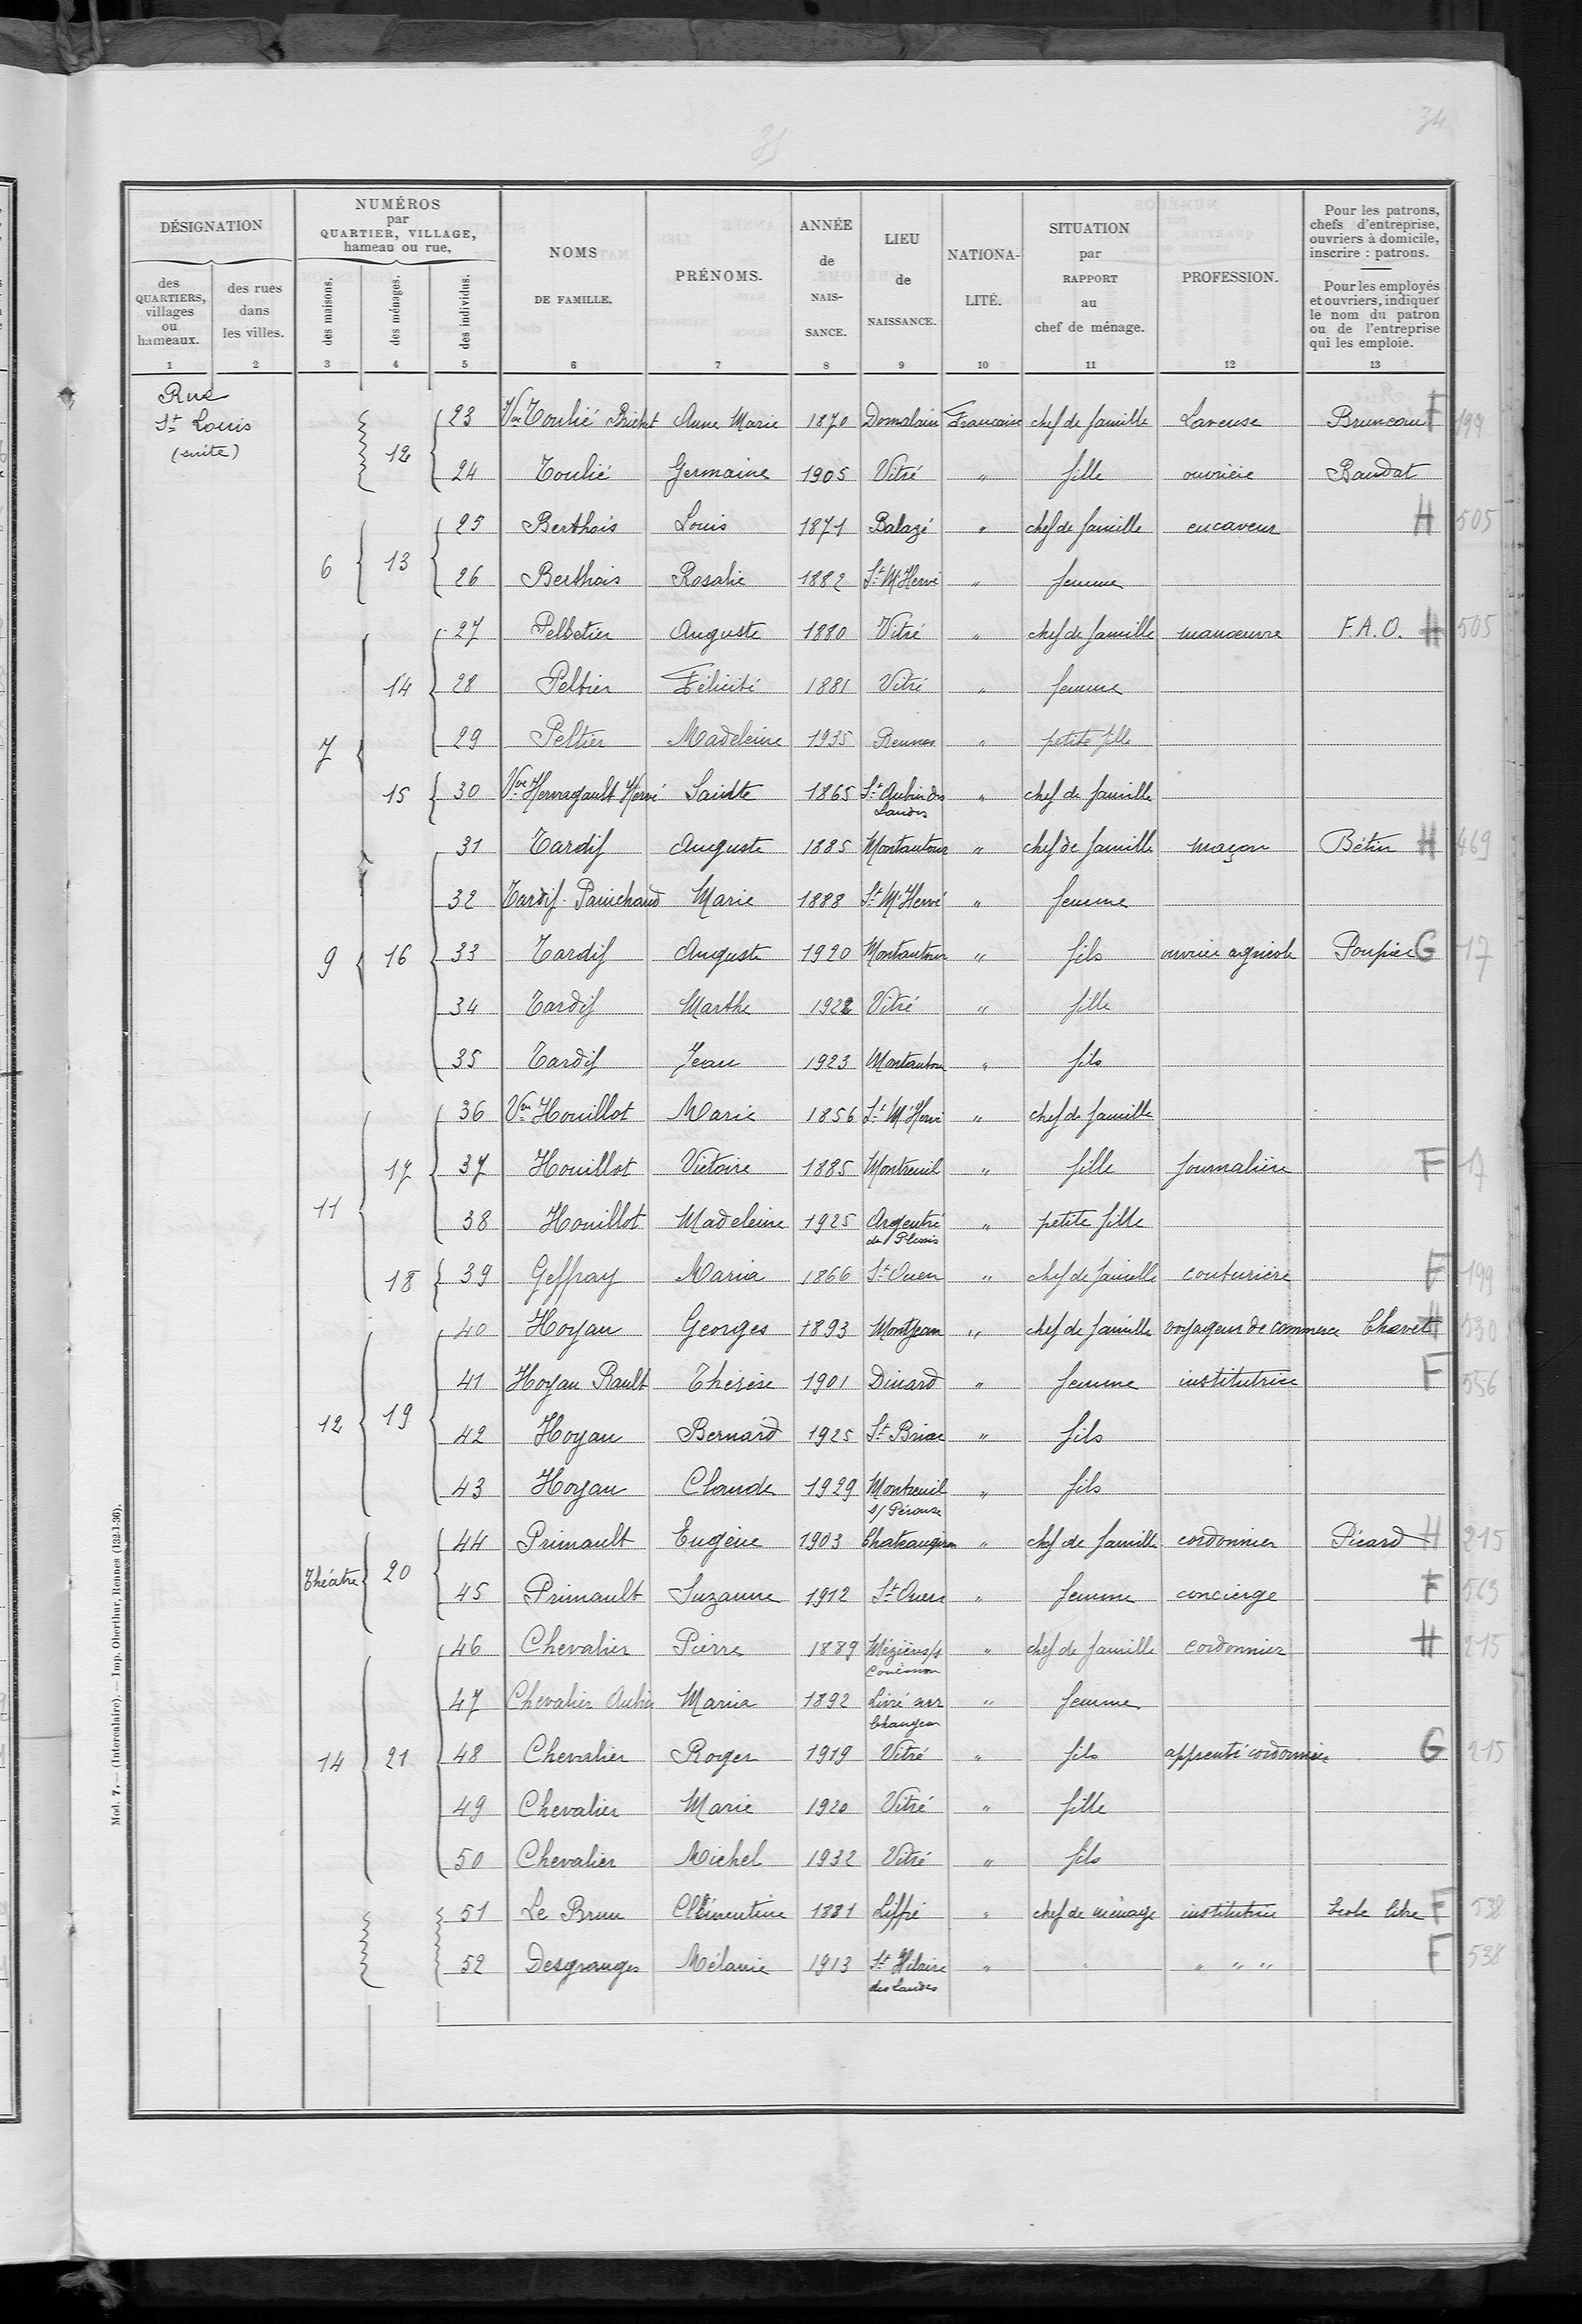 34
DÉSIGNATION
NUMÉROS
par
QUARTIER, VILLAGE,
hameau ou rue.
NOMS
DE FAMILLE.
PRÉNOMS.
ANNÉE
de
NAIS-
SANCE.
LIEU
de
NAISSANCE.
NATIONA-
LITÉ.
SITUATION
par
RAPPORT
au
chef de ménage.
PROFESSION.
Pour les patrons,
chefs d'entreprise,
ouvriers à domicile,
inscrire : patrons.
Pour les employés
et ouvriers, indiquer
le nom du patron
ou de l'entreprise
qui les emploie.
des
QUARTIERS,
villages
ou
hameaux.
des rues
dans
les villes.
des maisons.
des ménages.
des individus.
1 2 3 4 5 6 7 8 9 10 11 12 13
Rue
St Louis
(suite)
12 23 Vve Toulié Brichet Anne Marie 1870 Domalain Francaise chef de famille Laveuse F 199
24 Toulié Germaine 1905 Vitré " fille ouvrière Baudat
6 13 25 Berthois Louis 1871 Balazé " chef de famille encaveur H 505
26 Berthois Rosalie 1882 St M Hervé " femme
7 14 27 Pelletier Auguste 1880 Vitré " chef de famille manoeuvre F.A.O. H 505
28 Peltier Félicité 1881 Vitré " femme
29 Peltier Madeleine 1935 Rennes " petite fille
15 30 Vve Hervagault Hervé 1865 St Aubin des " chef de famille
Landes
9 16 31 Tardif Auguste 1885 Montautour " chef de famille maçon Bétin H 469
32 Tardif Painchaud Marie 1888 St M Hervé " femme
33 Tardif Auguste 1920 Montautour " fils ouvrier agricole Poupier G 17
34 Tardif Marthe 1922 Vitré " fille
35 Tardif Jean 1923 Montautour " fils
11 17 36 Vve Houillot Marie 1856 St M Hervé " chef de famille
37 Houillot Victoire 1885 Montreuil " fille journalière F 17
38 Houillot Madeleine 1925 Argentré " petite fille
du Plessis
18 39 Geffray Maria 1866 St Ouen " chef de famille couturière F 199
12 19 40 Hoyau Georges 1893 Montjean " chef de famille voyageur de commerce H 530
41 Hoyau Rault Thérèse 1901 Dinard " femme institutrice F 556
42 Hoyau Bernard 1925 St Briac " fils
43 Hoyau Claude 1929 Montreuil " fils
s/ Pérouse
Théâtre 20 44 Primault Eugène 1903 Chateaugiron " chef de famille cordonnier Picard H 215
45 Primault Suzanne 1912 St Ouen " femme concierge F 563
14 21 46 Chevalier Pierre 1889 Mézières/s " chef de famille cordonnier H 215
Couesnon
47 Chevalier Aubin Maria 1892 Livré sur " femme
Changeon
48 Chevalier Roger 1919 Vitré " fils apprenti cordonnier G 215
49 Chevalier Marie 1920 Vitré " fille
50 Chevalier Michel 1932 Vitré " fils
51 Le Brun Clémentine 1881 Liffré " chef de ménage institutrice Ecole libre F 538
52 Desgranges Mélanie 1913 St Hilaire " " " " " F 538
des Landes
Mod. 7. — (Intercalaire). — Imp. Oberthur, Rennes (132-1-36).